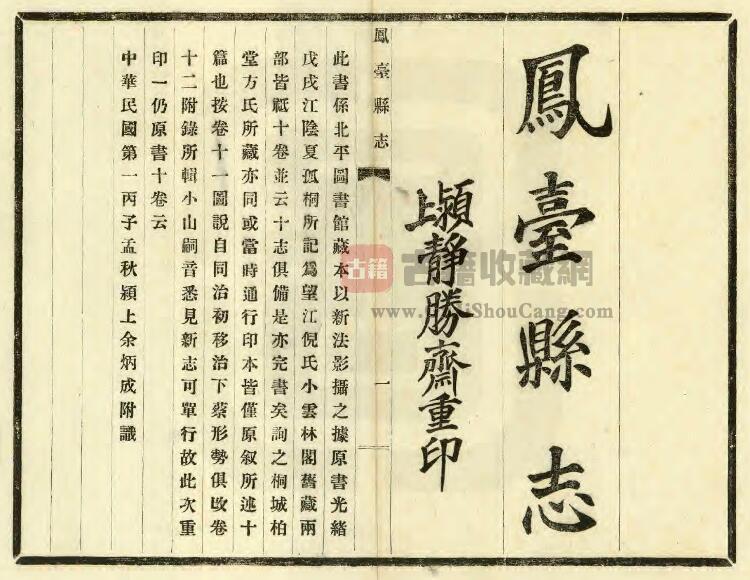 鳳臺縣志
潁上靜勝齋重印
鳳臺縣志
一
此書係北平圖書館藏本以新法影攝之據原書光緒
戊戌江陰夏孤桐所記爲望江倪氏小雲林閣舊藏兩
部皆祇十卷並云十志俱備是亦完書矣詢之桐城柏
堂方氏所藏亦同或當時通行印本皆僅原叙所述十
篇也按卷十一圖說自同治初移治下蔡形勢俱改卷
十二附錄所輯小山嗣音悉見新志可單行故此次重
印一仍原書十卷云
中華民國第一丙子孟秋潁上余炳成附識
古籍
古籍收藏網
www.GuJiShouCang.com